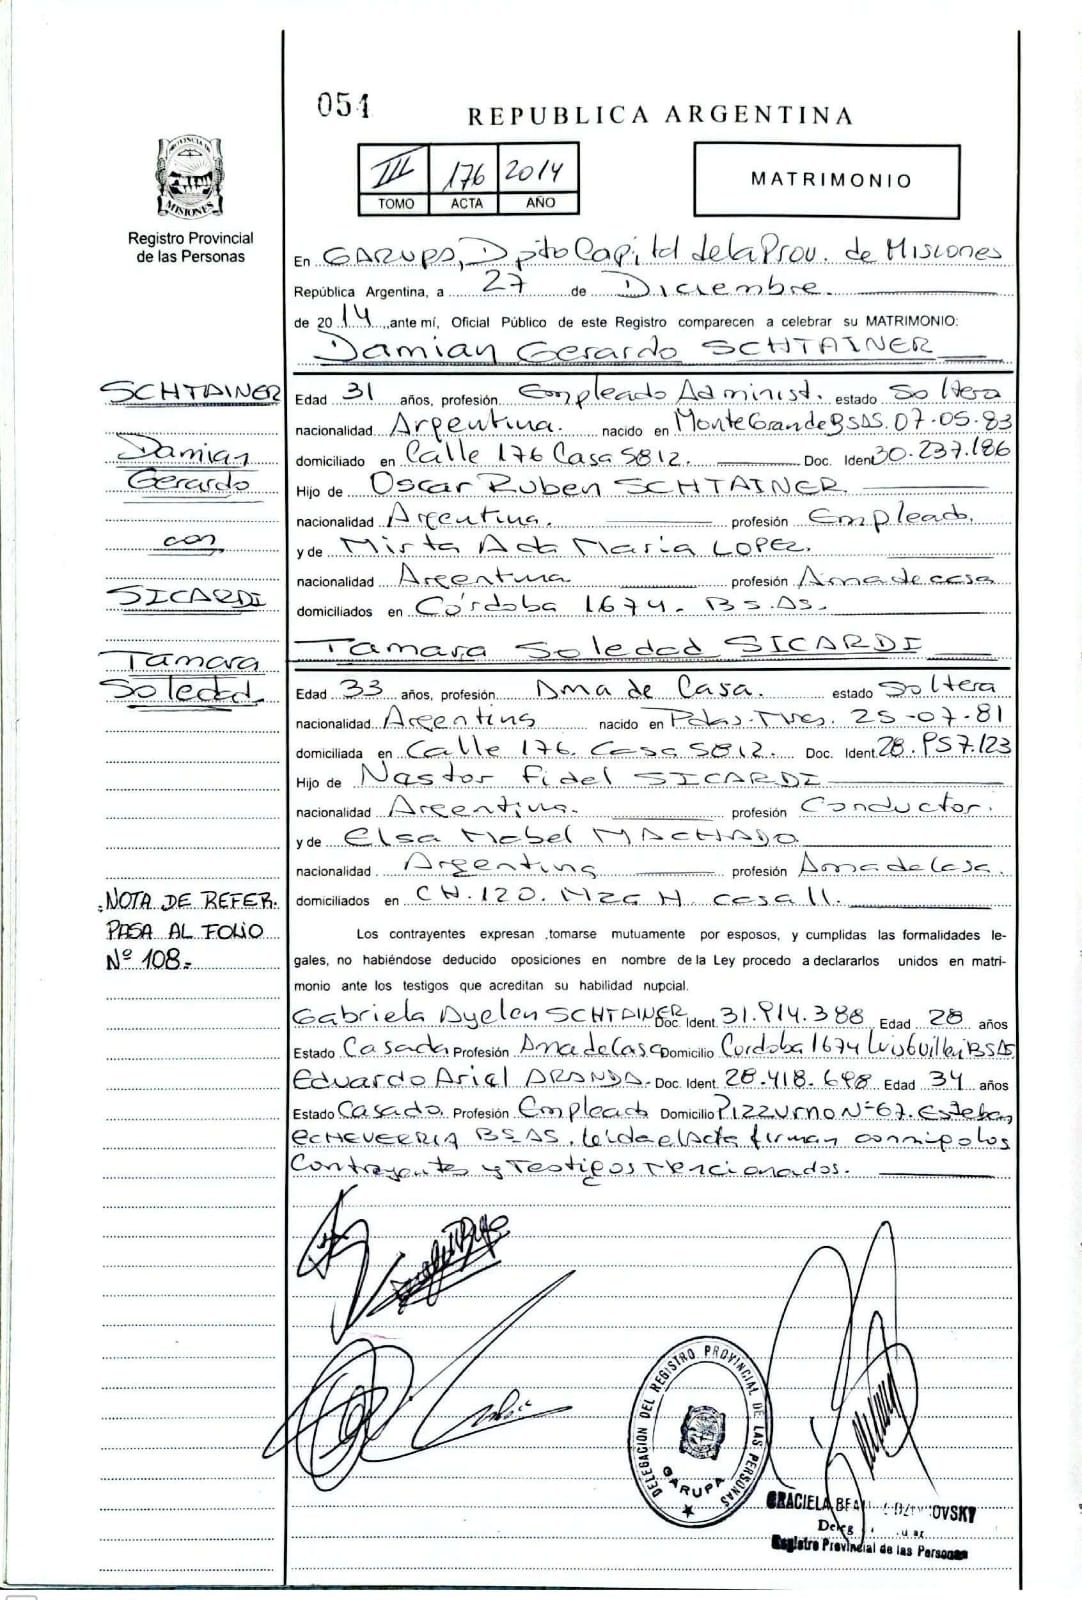 054
REPUBLICA ARGENTINA
III 176 2014
TOMO ACTA AÑO
MATRIMONIO
PROVINCIA DE
MISIONES
Registro Provincial
de las Personas
En GARUPA, Dpto Capital de la Prov. de Misiones
República Argentina, a 27 de Diciembre.
de 2014, ante mí, Oficial Público de este Registro comparecen a celebrar su MATRIMONIO:
Damian Gerardo SCHTAINER
SCHTAINER
Damian
Gerardo
con
SICARDI
Tamara
Soledad
Edad 31 años, profesión Empleado Administ. estado Soltera
nacionalidad Argentina. nacido en Monte Grande BSAS. 07-05-83
domiciliado en Calle 176 Casa 5812. Doc. Iden 30.237.186
Hijo de Oscar Ruben SCHTAINER.
nacionalidad Argentina. profesión Empleado.
y de Mirta Ada Maria LOPEZ.
nacionalidad Argentina profesión Ama de casa
domiciliados en Córdoba 1674. Bs.As.
Tamara Soledad SICARDI
Edad 33 años, profesión Ama de Casa. estado Soltera
nacionalidad Argentina nacido en Pdas. Mnes. 25-07-81
domiciliada en Calle 176. Casa 5812. Doc. Ident. 28.957.123
Hijo de Nestor Fidel SICARDI
nacionalidad Argentina. profesión Conductor.
y de Elsa Mabel MACHADO
nacionalidad Argentina profesión Ama de Casa.
domiciliados en CH. 120. Mza H casa 11.
NOTA DE REFER.
PASA AL FOLIO
Nº 108.-
Los contrayentes expresan tomarse mutuamente por esposos, y cumplidas las formalidades le-
gales, no habiéndose deducido oposiciones en nombre de la Ley procedo a declararlos unidos en matri-
monio ante los testigos que acreditan su habilidad nupcial.
Gabriela Ayelen SCHTAINER Doc. Ident. 31.914.388 Edad 28 años
Estado Casada Profesión Ama de Casa Domicilio Cordoba 1674 BSAS
Eduardo Ariel ARANDA. Doc. Ident. 28.418.698 Edad 34 años
Estado Casado. Profesión Empleado Domicilio Pizzurno Nº 67. Esteban
ECHEVERRIA BSAS. leida el Acta firman conmigo los
Contrayentes y Testigos mencionados.
DELEGACION DEL REGISTRO PROVINCIAL DE LAS PERSONAS
GARUPA
GRACIELA
Registro Provincial de las Personas